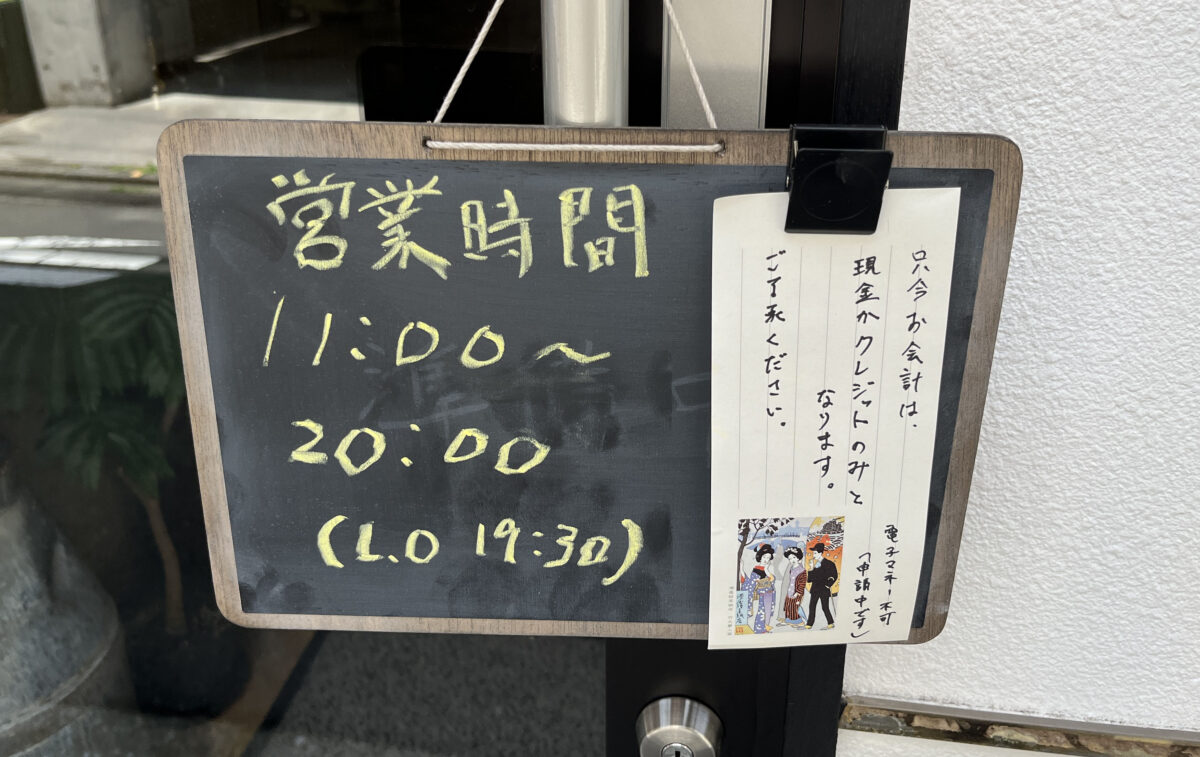 営業時間
11:00〜
20:00
(L.O 19:30)
只今お会計は、
現金かクレジットのみと
なります。
ご了承ください。
電子マネー不可
「申請中です」